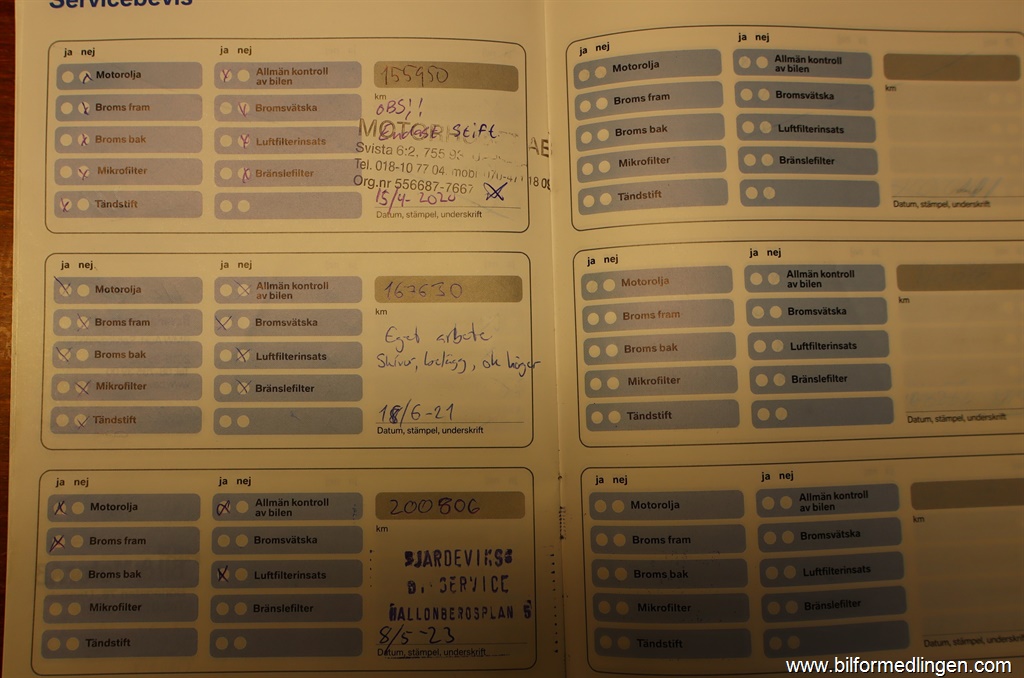 Servicebevis
ja nej
ja nej
Motorolja
Allmän kontroll
av bilen
155950
Broms fram
Bromsvätska
km
OBS!!
Broms bak
Luftfilterinsats
Endast Stift
Svista 6:2, 755
Mikrofilter
Bränslefilter
Tel. 018-10 77 04
Org.nr 556687-7667
Tändstift
15/4-2020
Datum, stämpel, underskrift
ja nej
ja nej
Motorolja
Allmän kontroll
av bilen
167630
Broms fram
Bromsvätska
km
Eget arbete
Broms bak
Luftfilterinsats
Skivor, belägg, ok höger
Mikrofilter
Bränslefilter
Tändstift
18/6-21
Datum, stämpel, underskrift
ja nej
ja nej
Motorolja
Allmän kontroll
av bilen
200806
Broms fram
Bromsvätska
km
Broms bak
Luftfilterinsats
SERVICE
Mikrofilter
Bränslefilter
HALLONBERGSPLAN 5
Tändstift
8/5-23
Datum, stämpel, underskrift
ja nej
ja nej
Motorolja
Allmän kontroll
av bilen
Broms fram
Bromsvätska
km
Broms bak
Luftfilterinsats
Mikrofilter
Bränslefilter
Tändstift
Datum, stämpel, underskrift
ja nej
ja nej
Motorolja
Allmän kontroll
av bilen
Broms fram
Bromsvätska
km
Broms bak
Luftfilterinsats
Mikrofilter
Bränslefilter
Tändstift
Datum, stämpel, underskrift
ja nej
ja nej
Motorolja
Allmän kontroll
av bilen
Broms fram
Bromsvätska
km
Broms bak
Luftfilterinsats
Mikrofilter
Bränslefilter
Tändstift
Datum, stämpel, underskrift
www.bilformedlingen.com